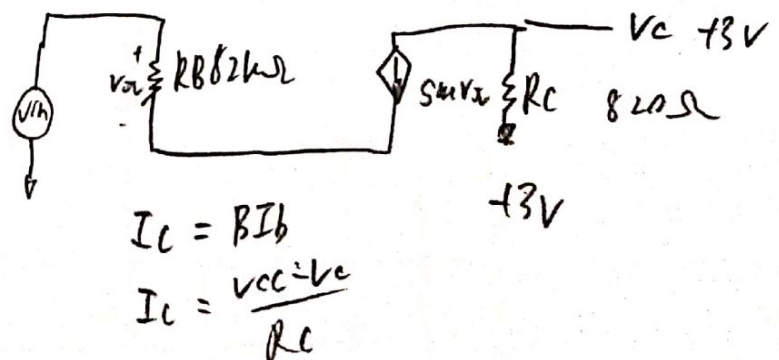 Vc +3V
+
Vπ RB 82kΩ
gmVπ RC 820Ω
Vin
+3V
Ic = BIb
Ic = Vcc-Vc
Rc